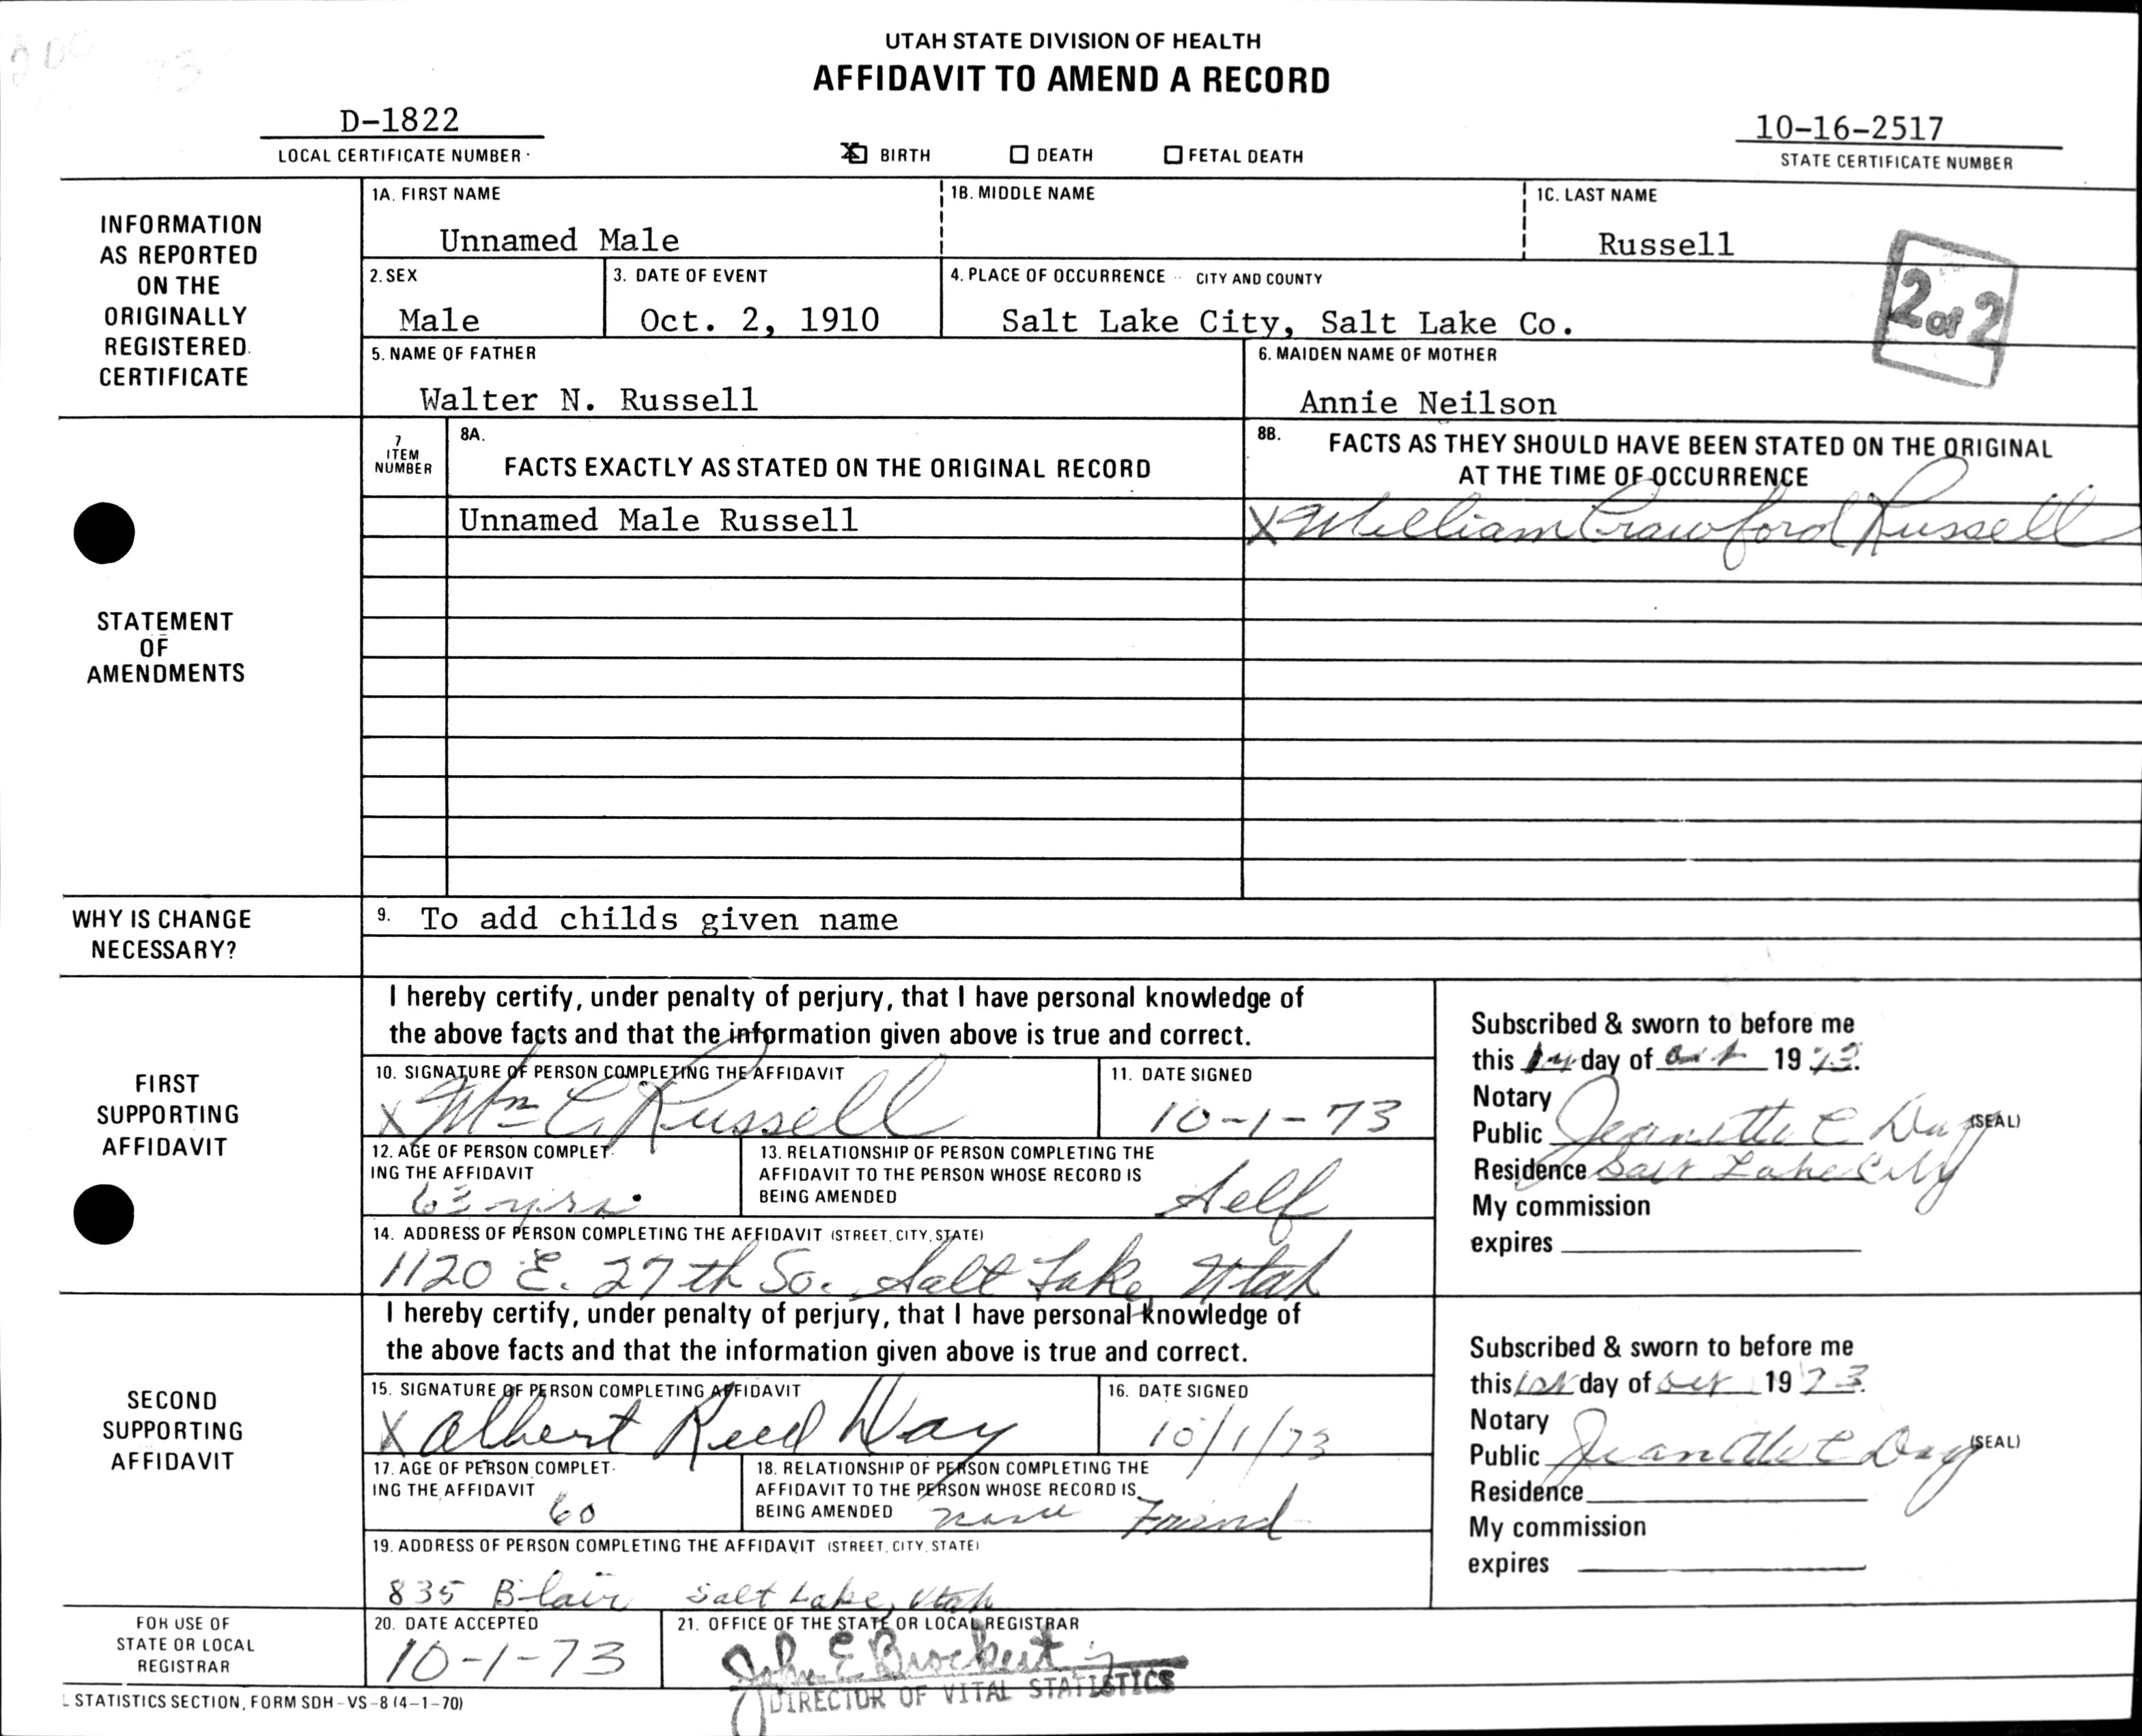 UTAH STATE DIVISION OF HEALTH
AFFIDAVIT TO AMEND A RECORD
D-1822
LOCAL CERTIFICATE NUMBER
X BIRTH DEATH FETAL DEATH
10-16-2517
STATE CERTIFICATE NUMBER
INFORMATION AS REPORTED ON THE ORIGINALLY REGISTERED CERTIFICATE
1A. FIRST NAME 1B. MIDDLE NAME 1C. LAST NAME
Unnamed Male Russell
2 of 2
2. SEX 3. DATE OF EVENT 4. PLACE OF OCCURRENCE CITY AND COUNTY
Male Oct. 2, 1910 Salt Lake City, Salt Lake Co.
5. NAME OF FATHER 6. MAIDEN NAME OF MOTHER
Walter N. Russell Annie Neilson
STATEMENT OF AMENDMENTS
7 ITEM NUMBER
8A. FACTS EXACTLY AS STATED ON THE ORIGINAL RECORD
8B. FACTS AS THEY SHOULD HAVE BEEN STATED ON THE ORIGINAL
AT THE TIME OF OCCURRENCE
Unnamed Male Russell X William Crawford Russell
WHY IS CHANGE NECESSARY?
9. To add childs given name
FIRST SUPPORTING AFFIDAVIT
I hereby certify, under penalty of perjury, that I have personal knowledge of
the above facts and that the information given above is true and correct.
10. SIGNATURE OF PERSON COMPLETING THE AFFIDAVIT 11. DATE SIGNED
X Wm C. Russell 10-1-73
12. AGE OF PERSON COMPLET-
ING THE AFFIDAVIT
63 yrs.
13. RELATIONSHIP OF PERSON COMPLETING THE
AFFIDAVIT TO THE PERSON WHOSE RECORD IS
BEING AMENDED Self
14. ADDRESS OF PERSON COMPLETING THE AFFIDAVIT (STREET, CITY, STATE)
1120 E. 27th So. Salt Lake, Utah
Subscribed & sworn to before me
this 1st day of Oct 1973.
Notary
Public Jeanette C Day (SEAL)
Residence Salt Lake City
My commission
expires
SECOND SUPPORTING AFFIDAVIT
I hereby certify, under penalty of perjury, that I have personal knowledge of
the above facts and that the information given above is true and correct.
15. SIGNATURE OF PERSON COMPLETING AFFIDAVIT 16. DATE SIGNED
X Albert Reed Day 10/1/73
17. AGE OF PERSON COMPLET-
ING THE AFFIDAVIT
60
18. RELATIONSHIP OF PERSON COMPLETING THE
AFFIDAVIT TO THE PERSON WHOSE RECORD IS
BEING AMENDED none Friend
19. ADDRESS OF PERSON COMPLETING THE AFFIDAVIT (STREET, CITY, STATE)
835 Blair Salt Lake, Utah
Subscribed & sworn to before me
this 1st day of Oct 1973.
Notary
Public Jeanette C Day (SEAL)
Residence
My commission
expires
FOR USE OF STATE OR LOCAL REGISTRAR
20. DATE ACCEPTED 21. OFFICE OF THE STATE OR LOCAL REGISTRAR
10-1-73 John E Brockert
DIRECTOR OF VITAL STATISTICS
L STATISTICS SECTION, FORM SDH-VS-8 (4-1-70)